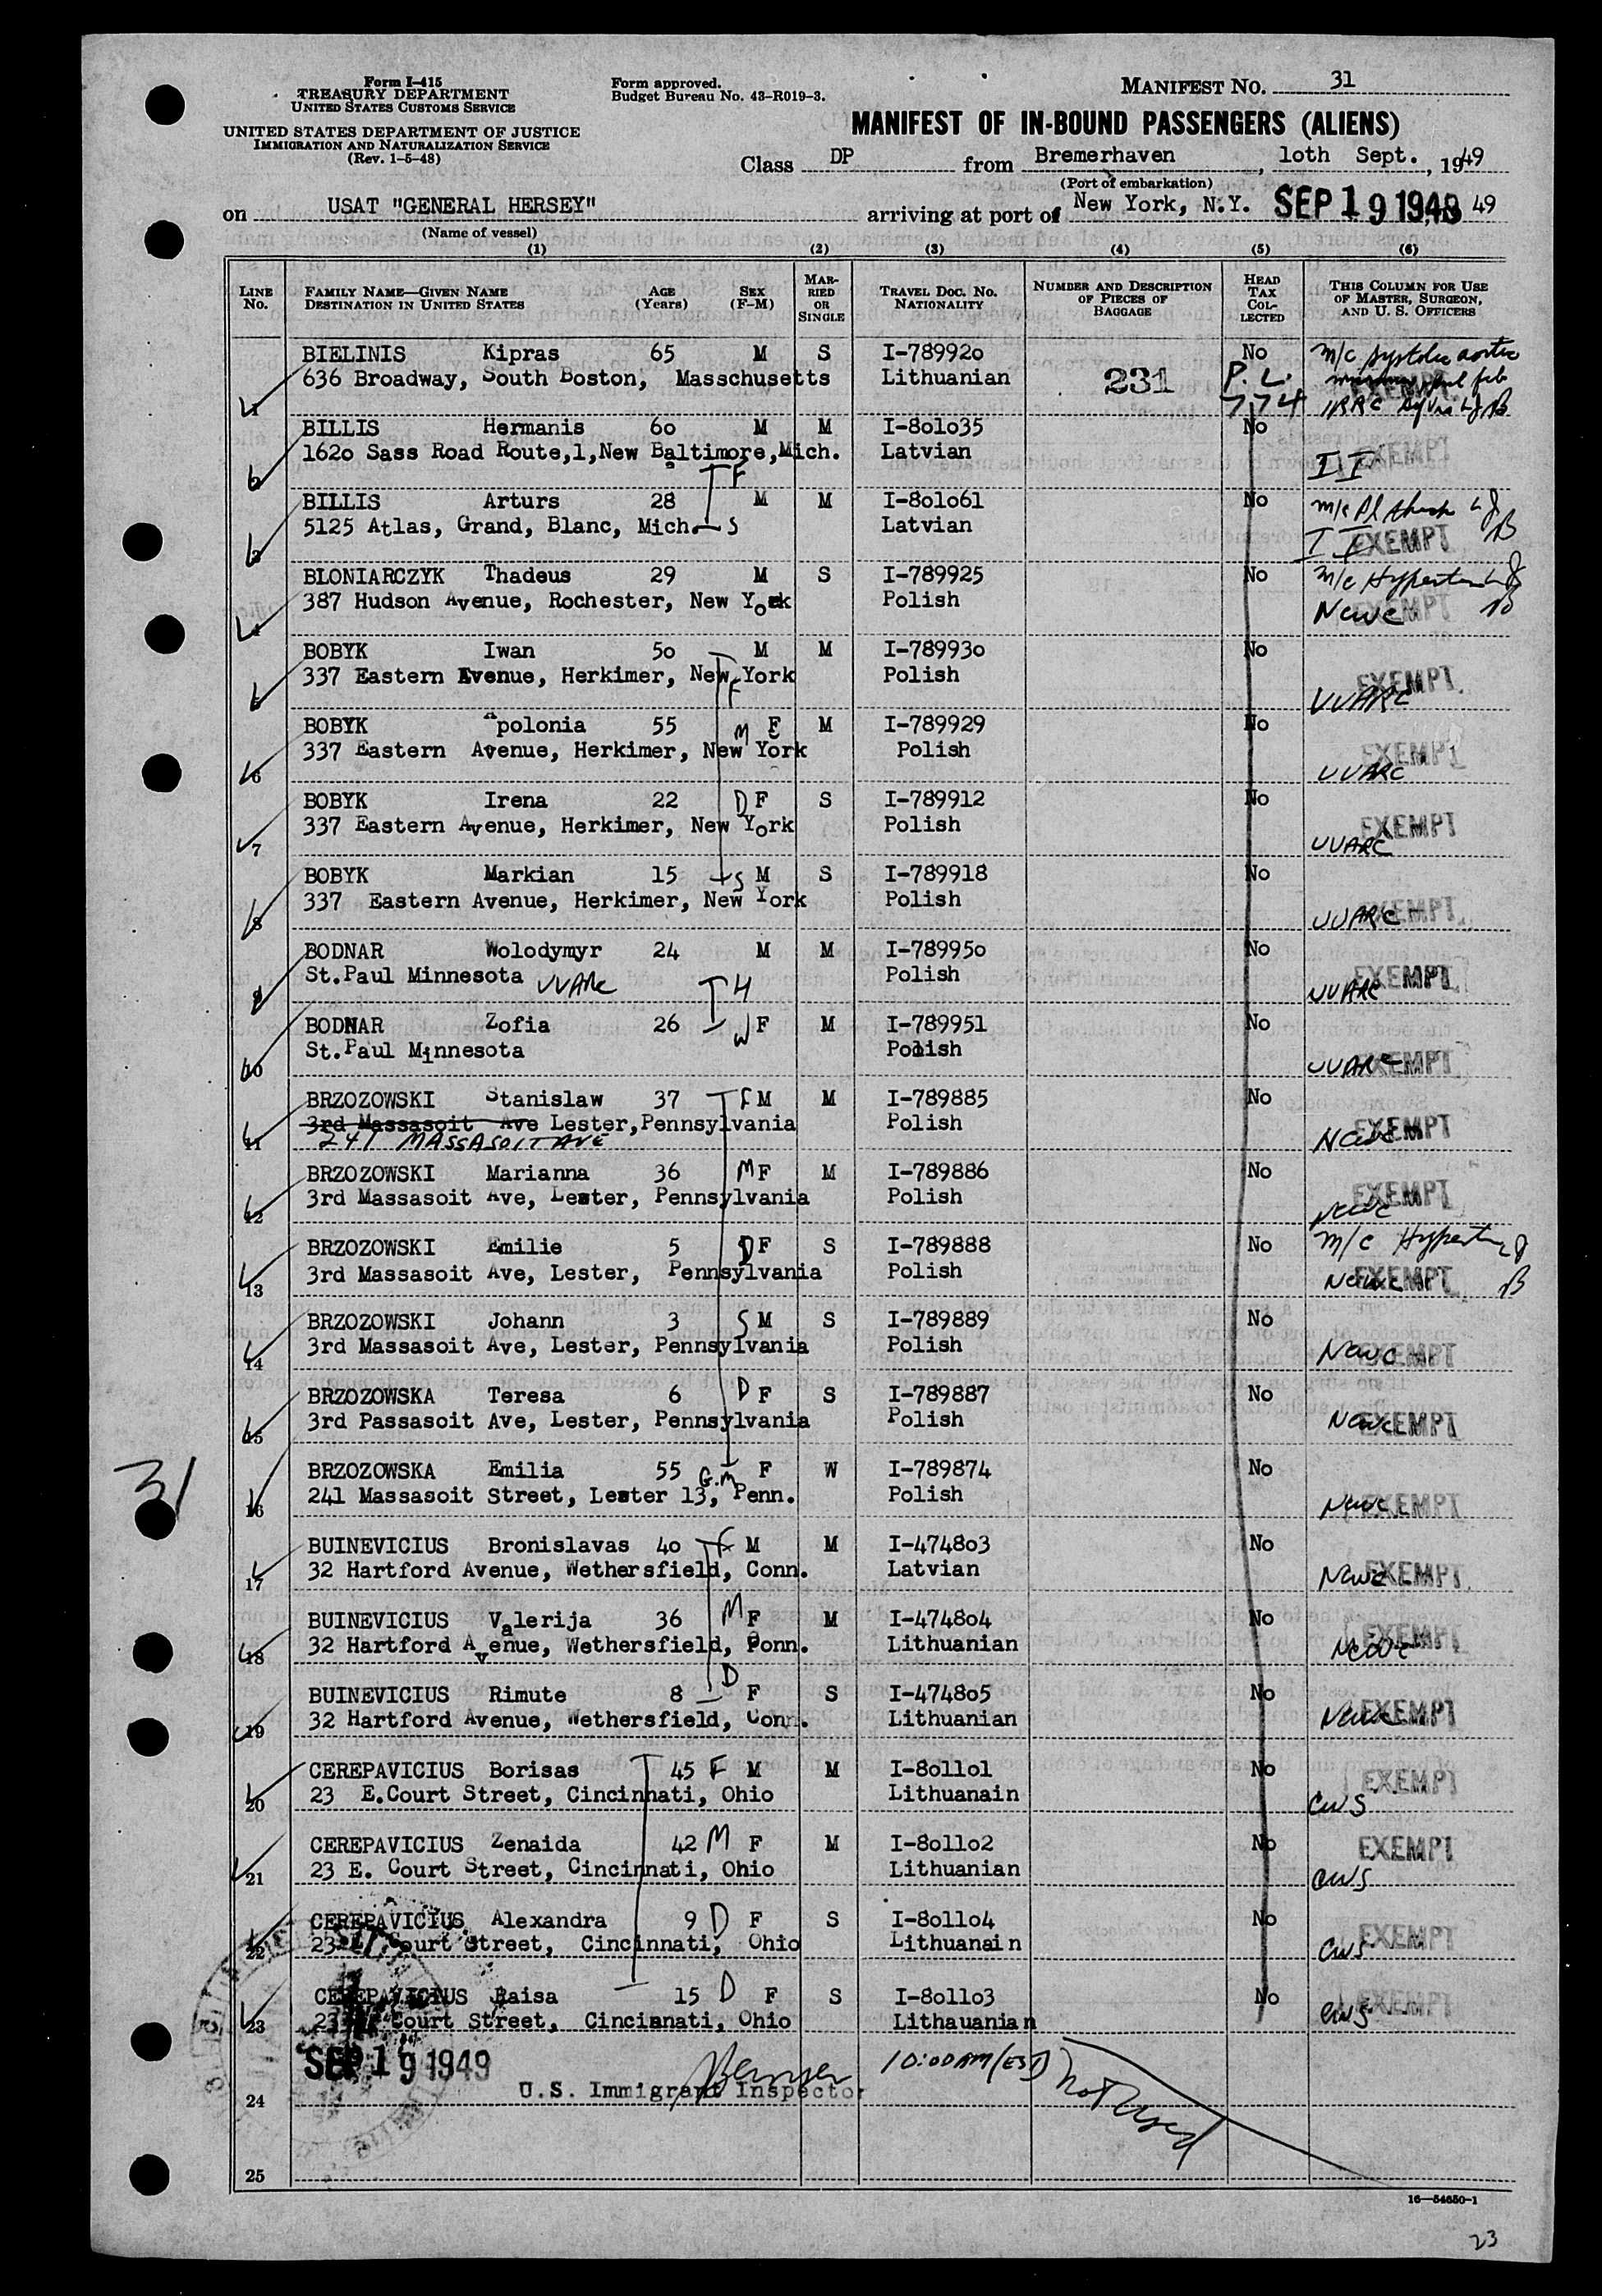 Form I-415
TREASURY DEPARTMENT
UNITED STATES CUSTOMS SERVICE
UNITED STATES DEPARTMENT OF JUSTICE
IMMIGRATION AND NATURALIZATION SERVICE
(Rev. 1-5-48)
Form approved.
Budget Bureau No. 43-R019-3.
MANIFEST NO. 31
MANIFEST OF IN-BOUND PASSENGERS (ALIENS)
Class DP from Bremerhaven, loth Sept., 1949
(Port of embarkation)
on USAT "GENERAL HERSEY" arriving at port of New York, N.Y. SEP 19 1948 49
(Name of vessel)
(1) (2) (3) (4) (5) (6)
LINE No. FAMILY NAME—GIVEN NAME DESTINATION IN UNITED STATES AGE (Years) SEX (F-M) MARRIED OR SINGLE TRAVEL DOC. NO. NATIONALITY NUMBER AND DESCRIPTION OF PIECES OF BAGGAGE HEAD TAX COLLECTED THIS COLUMN FOR USE OF MASTER, SURGEON, AND U. S. OFFICERS
BIELINIS Kipras 65 M S I-78992o No m/c systolic aortic
1 636 Broadway, South Boston, Masschusetts Lithuanian 231 P.L. 774 EXEMPT
BILLIS Hermanis 6o M M I-8olo35 No
2 162o Sass Road Route,1,New Baltimore,Mich. Latvian EXEMPT II
F
BILLIS Arturs 28 M M I-8olo61 No
3 5125 Atlas, Grand, Blanc, Mich. S Latvian II EXEMPT
BLONIARCZYK Thadeus 29 M S I-789925 No m/c Hyperten
4 387 Hudson Avenue, Rochester, New York Polish NCWC EXEMPT
BOBYK Iwan 5o M M I-78993o No
5 337 Eastern Avenue, Herkimer, New York F Polish EXEMPT UUARC
BOBYK Apolonia 55 M F M I-789929 No
6 337 Eastern Avenue, Herkimer, New York Polish EXEMPT UUARC
BOBYK Irena 22 D F S I-789912 No
7 337 Eastern Avenue, Herkimer, New York Polish EXEMPT UUARC
BOBYK Markian 15 S M S I-789918 No
8 337 Eastern Avenue, Herkimer, New York Polish EXEMPT UUARC
BODNAR Wolodymyr 24 M M I-78995o No
9 St.Paul Minnesota UUARC H Polish EXEMPT UUARC
BODNAR Zofia 26 W F M I-789951 No
10 St.Paul Minnesota Polish EXEMPT UUARC
BRZOZOWSKI Stanislaw 37 F M M I-789885 No
3rd Massasoit Ave Lester,Pennsylvania Polish EXEMPT
11 241 MASSASOIT AVE NCWC
BRZOZOWSKI Marianna 36 M F M I-789886 No
12 3rd Massasoit Ave, Lester, Pennsylvania Polish EXEMPT NCWC
BRZOZOWSKI Emilie 5 D F S I-789888 No m/c Hyperten
13 3rd Massasoit Ave, Lester, Pennsylvania Polish NCWC EXEMPT
BRZOZOWSKI Johann 3 S M S I-789889 No
14 3rd Massasoit Ave, Lester, Pennsylvania Polish NCWC EXEMPT
BRZOZOWSKA Teresa 6 D F S I-789887 No
15 3rd Passasoit Ave, Lester, Pennsylvania Polish NCWC EXEMPT
BRZOZOWSKA Emilia 55 G.M F W I-789874 No
31
16 241 Massasoit Street, Lester 13, Penn. Polish NCWC EXEMPT
BUINEVICIUS Bronislavas 4o F M M I-4748o3 No
17 32 Hartford Avenue, Wethersfield, Conn. Latvian NCWC EXEMPT
BUINEVICIUS Valerija 36 M F M I-4748o4 No
18 32 Hartford Avenue, Wethersfield, Conn. Lithuanian NCWC EXEMPT
BUINEVICIUS Rimute 8 D F S I-4748o5 No
19 32 Hartford Avenue, Wethersfield, Conn. Lithuanian NCWC EXEMPT
CEREPAVICIUS Borisas 45 F M M I-8ollol No
20 23 E.Court Street, Cincinnati, Ohio Lithuanain EXEMPT CWS
CEREPAVICIUS Zenaida 42 M F M I-8ollo2 No EXEMPT
21 23 E. Court Street, Cincinnati, Ohio Lithuanian CWS
CEREPAVICIUS Alexandra 9 D F S I-8ollo4 No
22 23 E. Court Street, Cincinnati, Ohio Lithuanain CWS EXEMPT
CEREPAVICIUS Raisa 15 D F S I-8ollo3 No
23 23 E. Court Street, Cincinnati, Ohio Lithauanian CWS EXEMPT
SEP 19 1949 10:00AM (EST) Not Used
24 U.S. Immigrant Inspector
25
16—54650-1
23